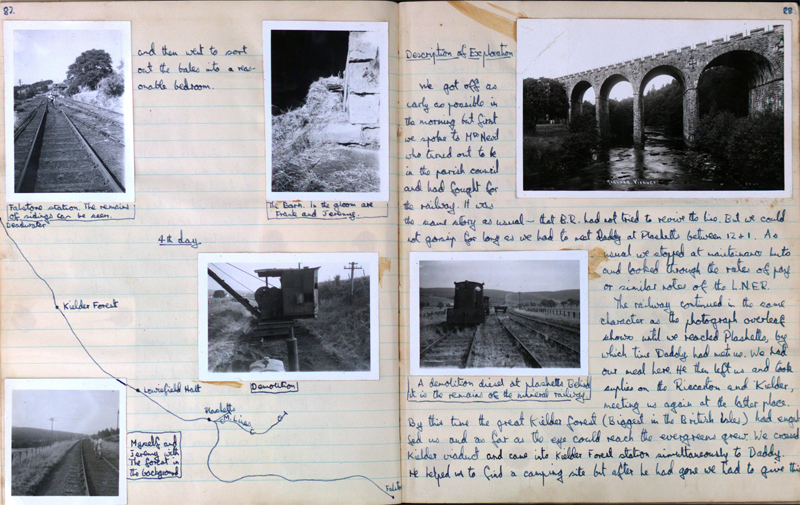 87.
and then went to sort
out the bales into a rea-
onable bedroom.
Falstone station. The remains
of sidings can be seen.
The Barn. In the gloom are
Frank and Jeremy.
4th day.
Deadwater
Kielder Forest
Lewisfield Halt
Plashetts
Demolition
Myself and
Jeremy with
The forest in
the background
88.
Description of Exploration
We got off as
early as possible in
the morning but first
we spoke to Mr
who turned out to be
in the parish council
and had fought for
the railway. It was
the same story as usual - that B.R. had not tried to revive the line. But we could
not gossip for long as we had to meet Daddy at Plashetts between 12 & 1. As
usual we stopped at maintenance huts
and looked through the rates of pay
or similar notes of the L.N.E.R.
The railway continued in the same
character as the photograph overleaf
shows until we reached Plashetts, by
which time Daddy had met us. We had
our meal here. He then left us and took
supplies on the Riccarton and Kielder,
meeting us again at the latter place.
By this time the great Kielder forest (Biggest in the British Isles) had
sed us and as far as the eye could reach the evergreens grew. We crossed
Kielder viaduct and came into Kielder Forest station simultaneously to Daddy.
He helped us to find a camping site but after he had gone we had to give this
KIELDER VIADUCT
A demolition diesel at Plashetts. Behind
it is the remains of the mineral railway.